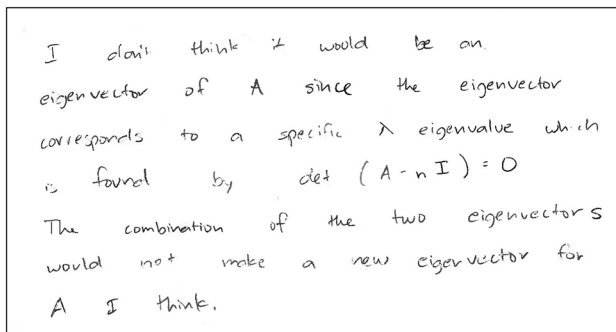 I don't think it would be an
eigenvector of A since the eigenvector
corresponds to a specific λ eigenvalue which
is found by det (A - n I) = 0
The combination of the two eigenvectors
would not make a new eigenvector for
A I think.